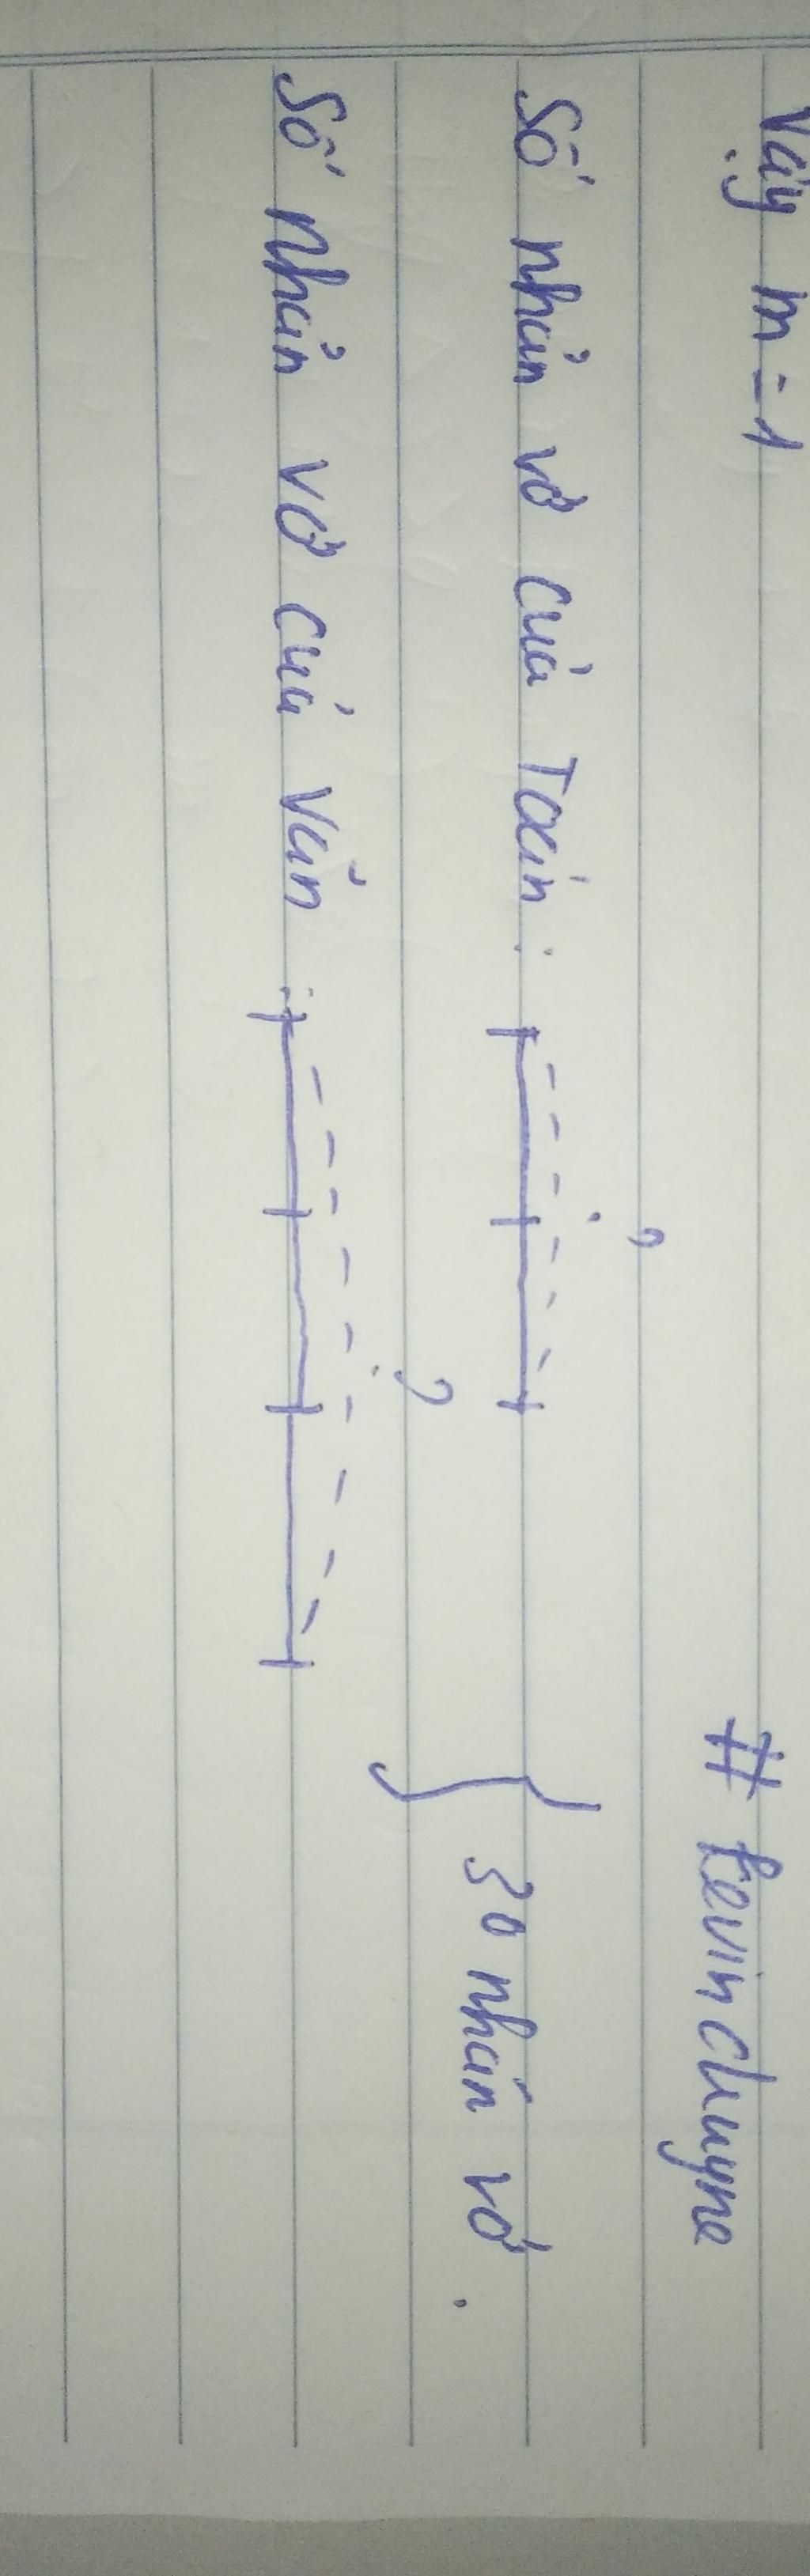 Vậy m = 1
# kevinchuyne
?
Số nhãn vở của Toán :
30 nhãn vở.
?
Số nhãn vở của Văn :